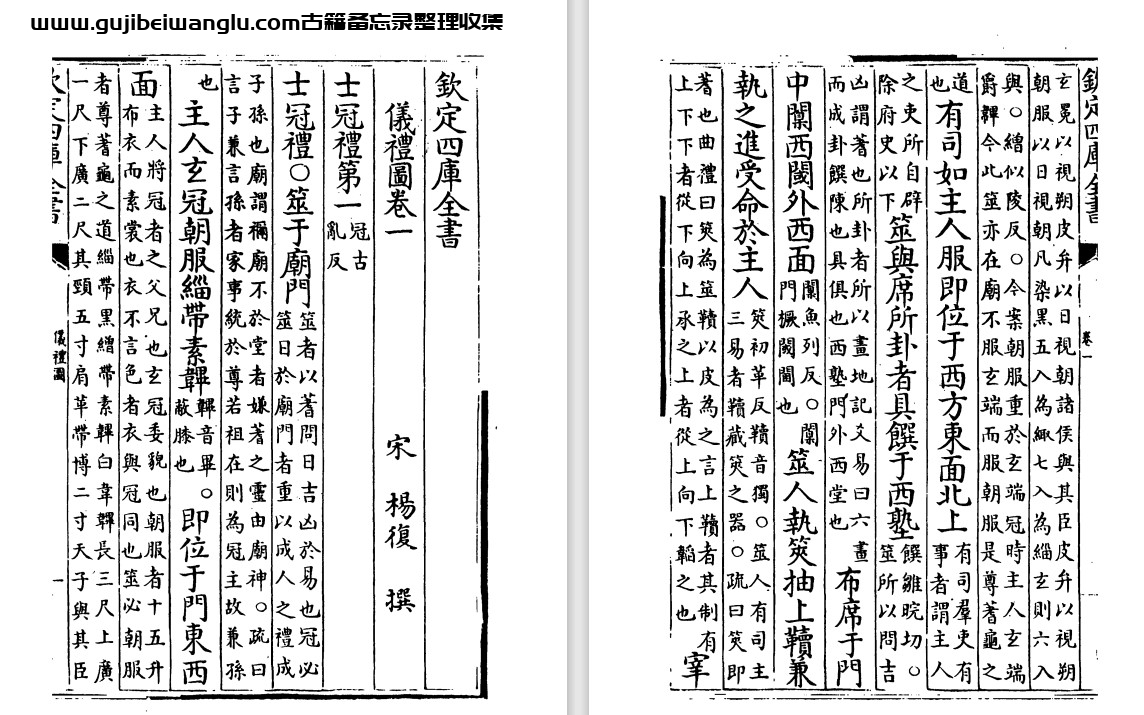 www.gujibeiwanglu.com古籍备忘录整理收集
欽定四庫全書
儀禮圖卷一 宋 楊復 撰
士冠禮第一 冠古亂反
士冠禮○筮于廟門 筮者以蓍問日吉凶於易也冠必筮日於廟門者重以成人之禮成
子孫也廟謂禰廟不於堂者嫌蓍之靈由廟神○疏曰言子兼言孫者家事統於尊若祖在則為冠主故兼孫
也 主人玄冠朝服緇帶素韠 韠音畢○蔽膝也 即位于門東西
面 主人將冠者之父兄也玄冠委貌也朝服者十五升布衣而素裳也衣不言色者衣與冠同也筮必朝服
者尊蓍龜之道緇帶黑繒帶素韠白韋韠長三尺上廣一尺下廣二尺其頸五寸肩革帶博二寸天子與其臣
欽定四庫全書 儀禮圖 一
欽定四庫全書 卷一
玄冕以視朔皮弁以日視朝諸侯與其臣皮弁以視朔朝服以日視朝凡染黑五入為緅七入為緇玄則六入
與○繒似陵反○今案朝服重於玄端冠時主人玄端爵韠今此筮亦在廟不服玄端而服朝服是尊蓍龜之
道也 有司如主人服即位于西方東面北上 有司羣吏有事者謂主人
之吏所自辟除府史以下 筮與席所卦者具饌于西塾 饌雛晥切○筮所以問吉
凶謂蓍也所卦者所以畫地記爻易曰六畫而成卦饌陳也具俱也西塾門外西堂也 布席于門
中闑西閾外西面 闑魚列反○闑門橛閾閫也 筮人執筴抽上韇兼
執之進受命於主人 筴初革反韇音獨○筮人有司主三易者韇藏筴之器○疏曰筴即
蓍也曲禮曰筴為筮韇以皮為之言上韇者其制有上下下者從下向上承之上者從上向下韜之也 宰